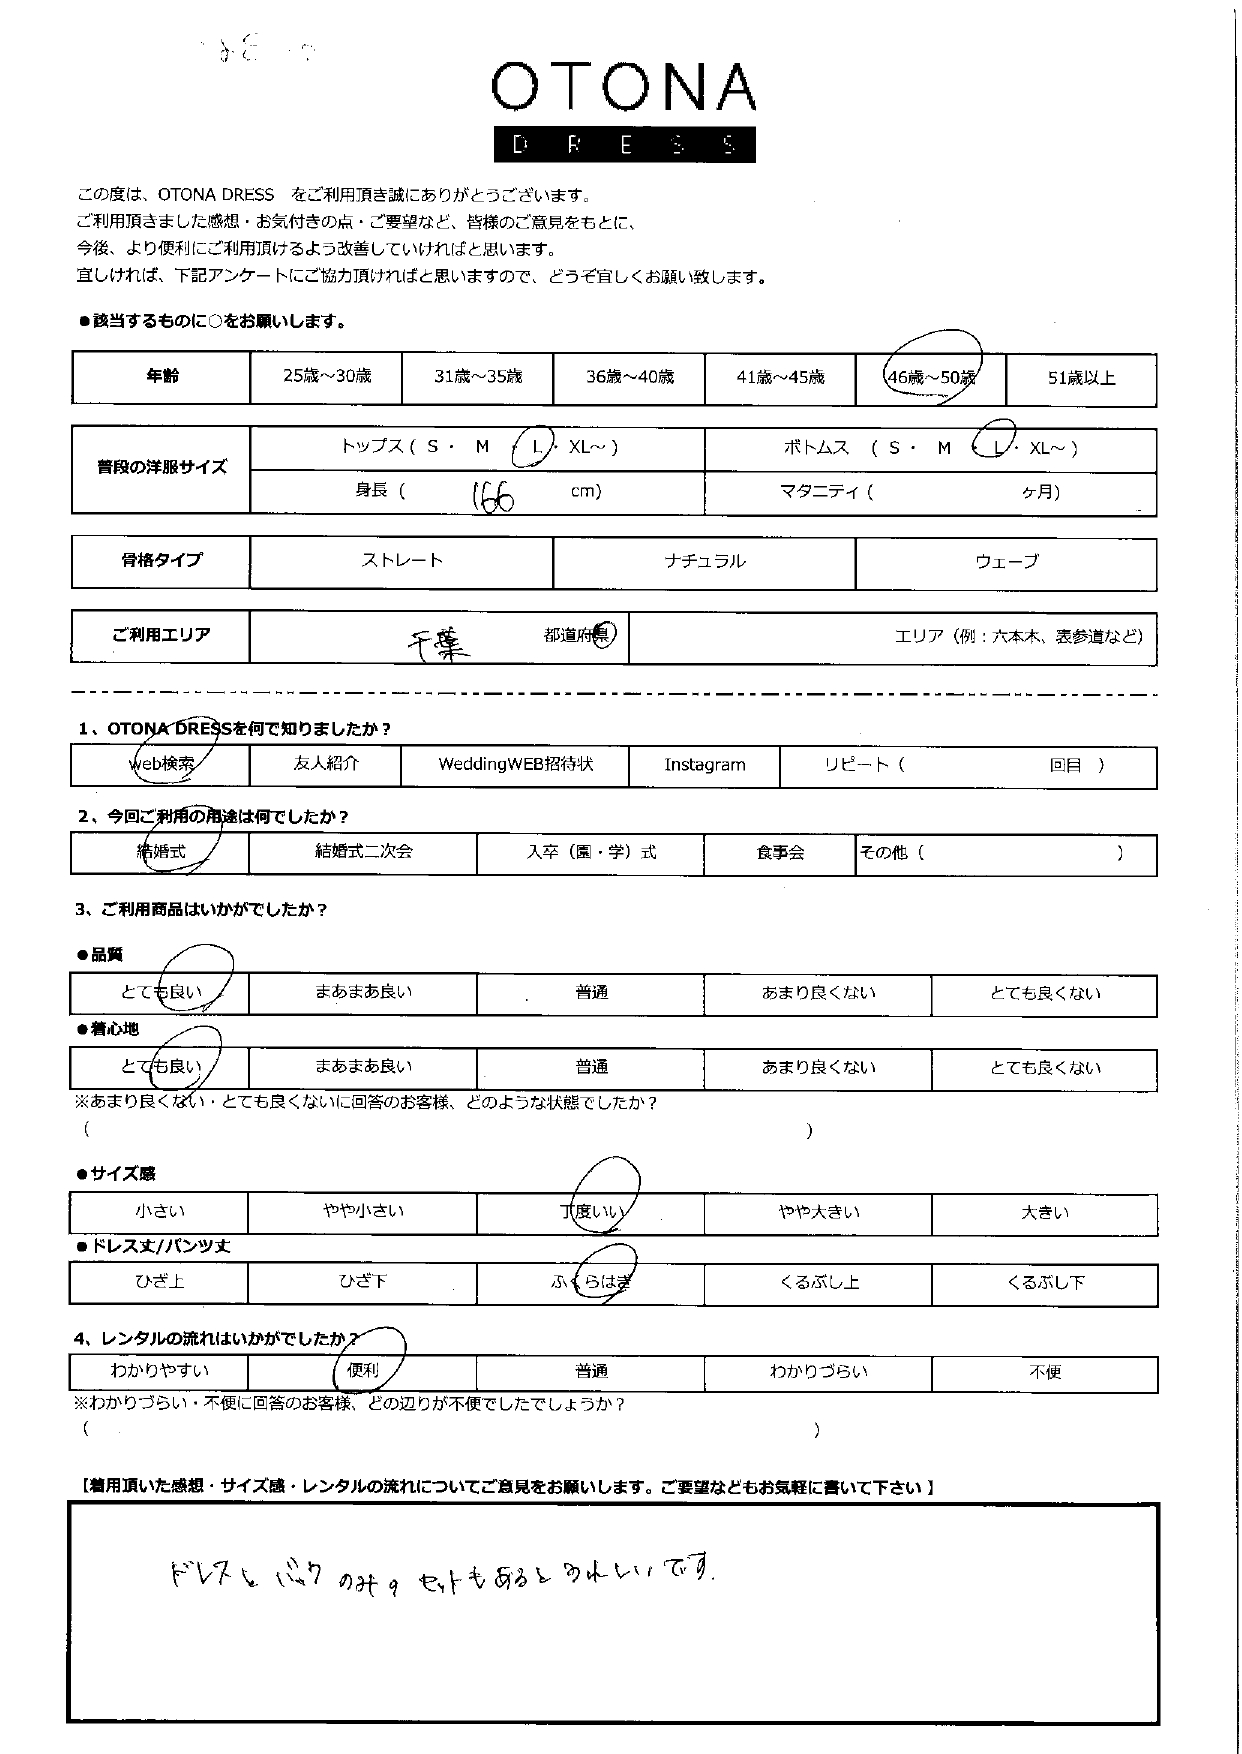 OTONA
DRESS
この度は、OTONA DRESS　をご利用頂き誠にありがとうございます。
ご利用頂きました感想・お気付きの点・ご要望など、皆様のご意見をもとに、
今後、より便利にご利用頂けるよう改善していければと思います。
宜しければ、下記アンケートにご協力頂ければと思いますので、どうぞ宜しくお願い致します。
●該当するものに○をお願いします。
年齢 25歳～30歳 31歳～35歳 36歳～40歳 41歳～45歳 46歳～50歳 51歳以上
普段の洋服サイズ トップス ( S ・ M ・ L ・ XL～ ) ボトムス ( S ・ M ・ L ・ XL～ )
身長 ( 166 cm) マタニティ ( ヶ月)
骨格タイプ ストレート ナチュラル ウェーブ
ご利用エリア 千葉 都道府県 エリア（例：六本木、表参道など）
1、OTONA DRESSを何で知りましたか？
web検索 友人紹介 WeddingWEB招待状 Instagram リピート ( 回目 )
2、今回ご利用の用途は何でしたか？
結婚式 結婚式二次会 入卒（園・学）式 食事会 その他 ( )
3、ご利用商品はいかがでしたか？
●品質
とても良い まあまあ良い 普通 あまり良くない とても良くない
●着心地
とても良い まあまあ良い 普通 あまり良くない とても良くない
※あまり良くない・とても良くないに回答のお客様、どのような状態でしたか？
( )
●サイズ感
小さい やや小さい 丁度いい やや大きい 大きい
●ドレス丈/パンツ丈
ひざ上 ひざ下 ふくらはぎ くるぶし上 くるぶし下
4、レンタルの流れはいかがでしたか？
わかりやすい 便利 普通 わかりづらい 不便
※わかりづらい・不便に回答のお客様、どの辺りが不便でしたでしょうか？
( )
【着用頂いた感想・サイズ感・レンタルの流れについてご意見をお願いします。ご要望などもお気軽に書いて下さい 】
ドレスとバックのみのセットもあるとうれしいです.